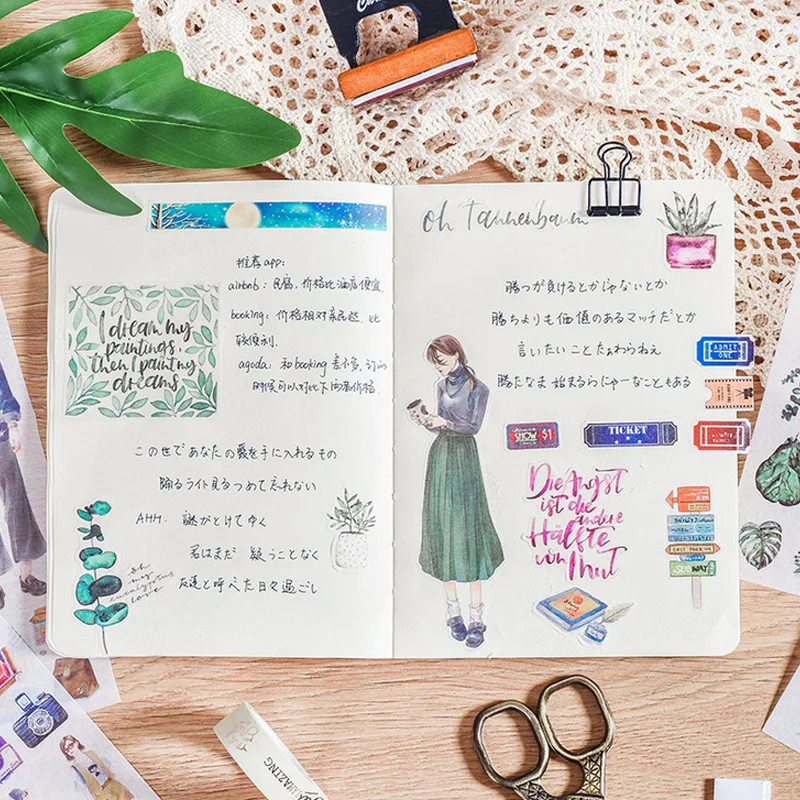 推荐app:
airbnb: 民宿, 价格比酒店便宜.
booking: 价格相对亲民些, 比
较便利.
agoda: 和booking差不多, 订的
时候可以对比下两者价格.
I dream my
paintings,
then I paint my
dreams
この世であなたの愛を手に入れるもの
踊るライト見るつめて忘れない
AHH. 謎がとけてゆく
君はまだ 疑うことなく
友達と呼べた日々過ごし
oh
my
eucalyptus
love
oh Tannenbaum
勝つが負けるとかじゃないとか
勝ちよりも価値のあるマッチだとか
言いたいことたぁわらねぇ
勝たなま始まるらにゃーなこともある
ADMIT
ONE
SHOW $1
TICKET
Die Angst
ist die
andere
Hälfte
von Mut
EAST PARK
SUBWAY
AMAZING